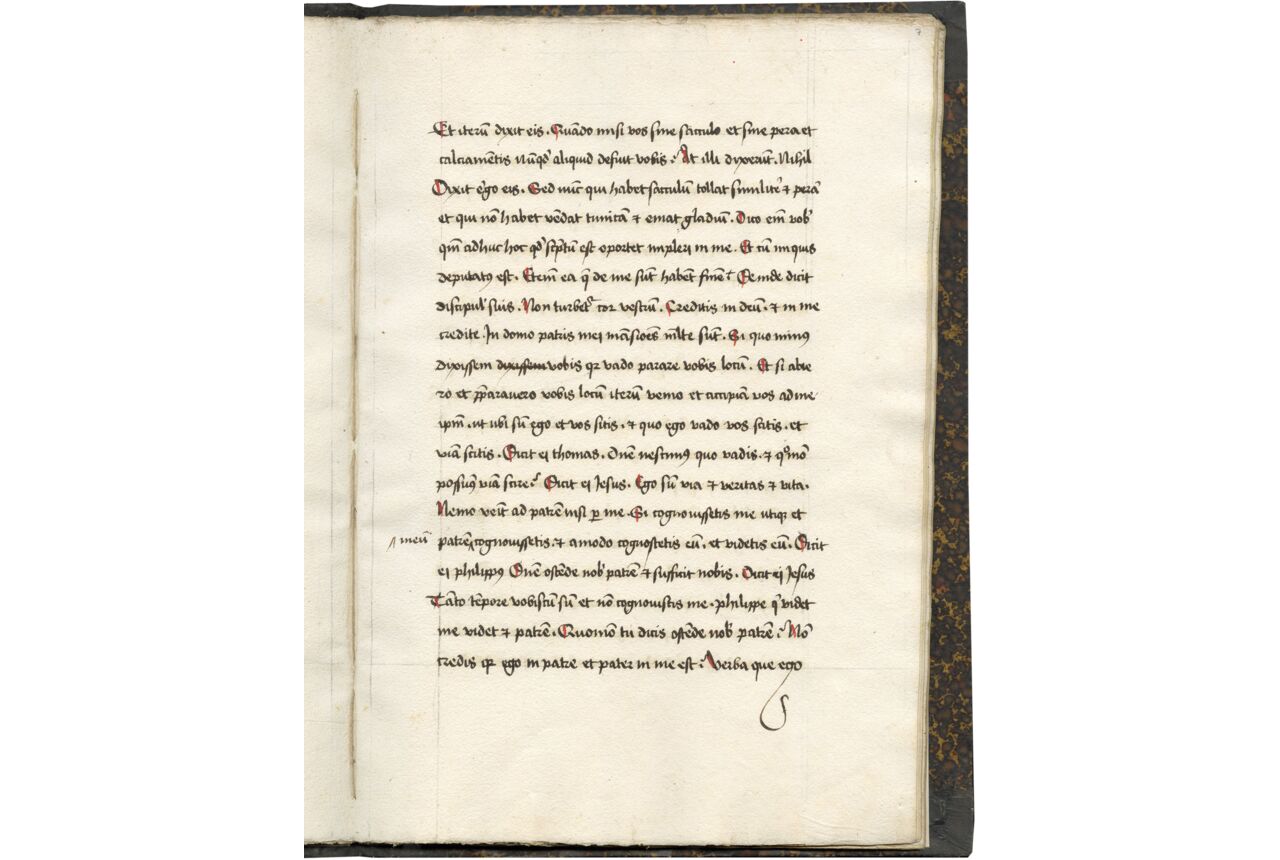 7
Et iterū dixit eis . Quādo misi vos sine sacculo et sine pera et
calciamētis nūqd̄ aliquid defuit vobis ? At illi dyxerūt . Nihil
Dixit ergo eis . Sed nūc qui habet sacculū tollat similitˀ ⁊ perā
et qui nō habet vēdat tunicā ⁊ emat gladiū . Dico em̄ vobˀ
qm̄ adhuc hoc qd̄ scptū est oportet impleri in me . Et cū iniquis
deputatꝰ est . Etem̄ ea q̄ de me sūt habēt finē ? Deinde dicit
discipulˀ suis . Non turbetˀ cor vestrū . Creditis in deū . ⁊ in me
credite . In domo patris mei māsiōes mlte sūt . Si quo minꝰ
dixissem dixissem vobis qꝛ vado parare vobis locū . Et si abie
ro et p̄paravero vobis locū iterū venio et accipiā vos ad me
ipm̄ . ut ubi sū ego et vos sitis . ⁊ quo ego vado vos scitis . et
viā scitis . Dicit ei thomas . Dn̄e nescimꝰ quo vadis . ⁊ quōmō
possumꝰ viā scire ? Dicit ei Jesus . Ego sū via ⁊ veritas ⁊ vita .
Nemo venit ad patrē nisi ꝑ me . Si cognovissetis me utiqꝫ et
meū patrē cognovissetis . ⁊ amodo cognoscetis eū . et videtis eū . Dicit
ei philippꝰ Dn̄e ostēde nobˀ patrē ⁊ sufficit nobis . Dicit ei Jesus
Tāto tēpore vobiscū sū et nō cognovistis me . philippe qˀ videt
me videt ⁊ patrē . Quomō tu dicis ostēde nobˀ patrē ? Nō
credis qꝛ ego in patre et pater in me est ? Verba que ego